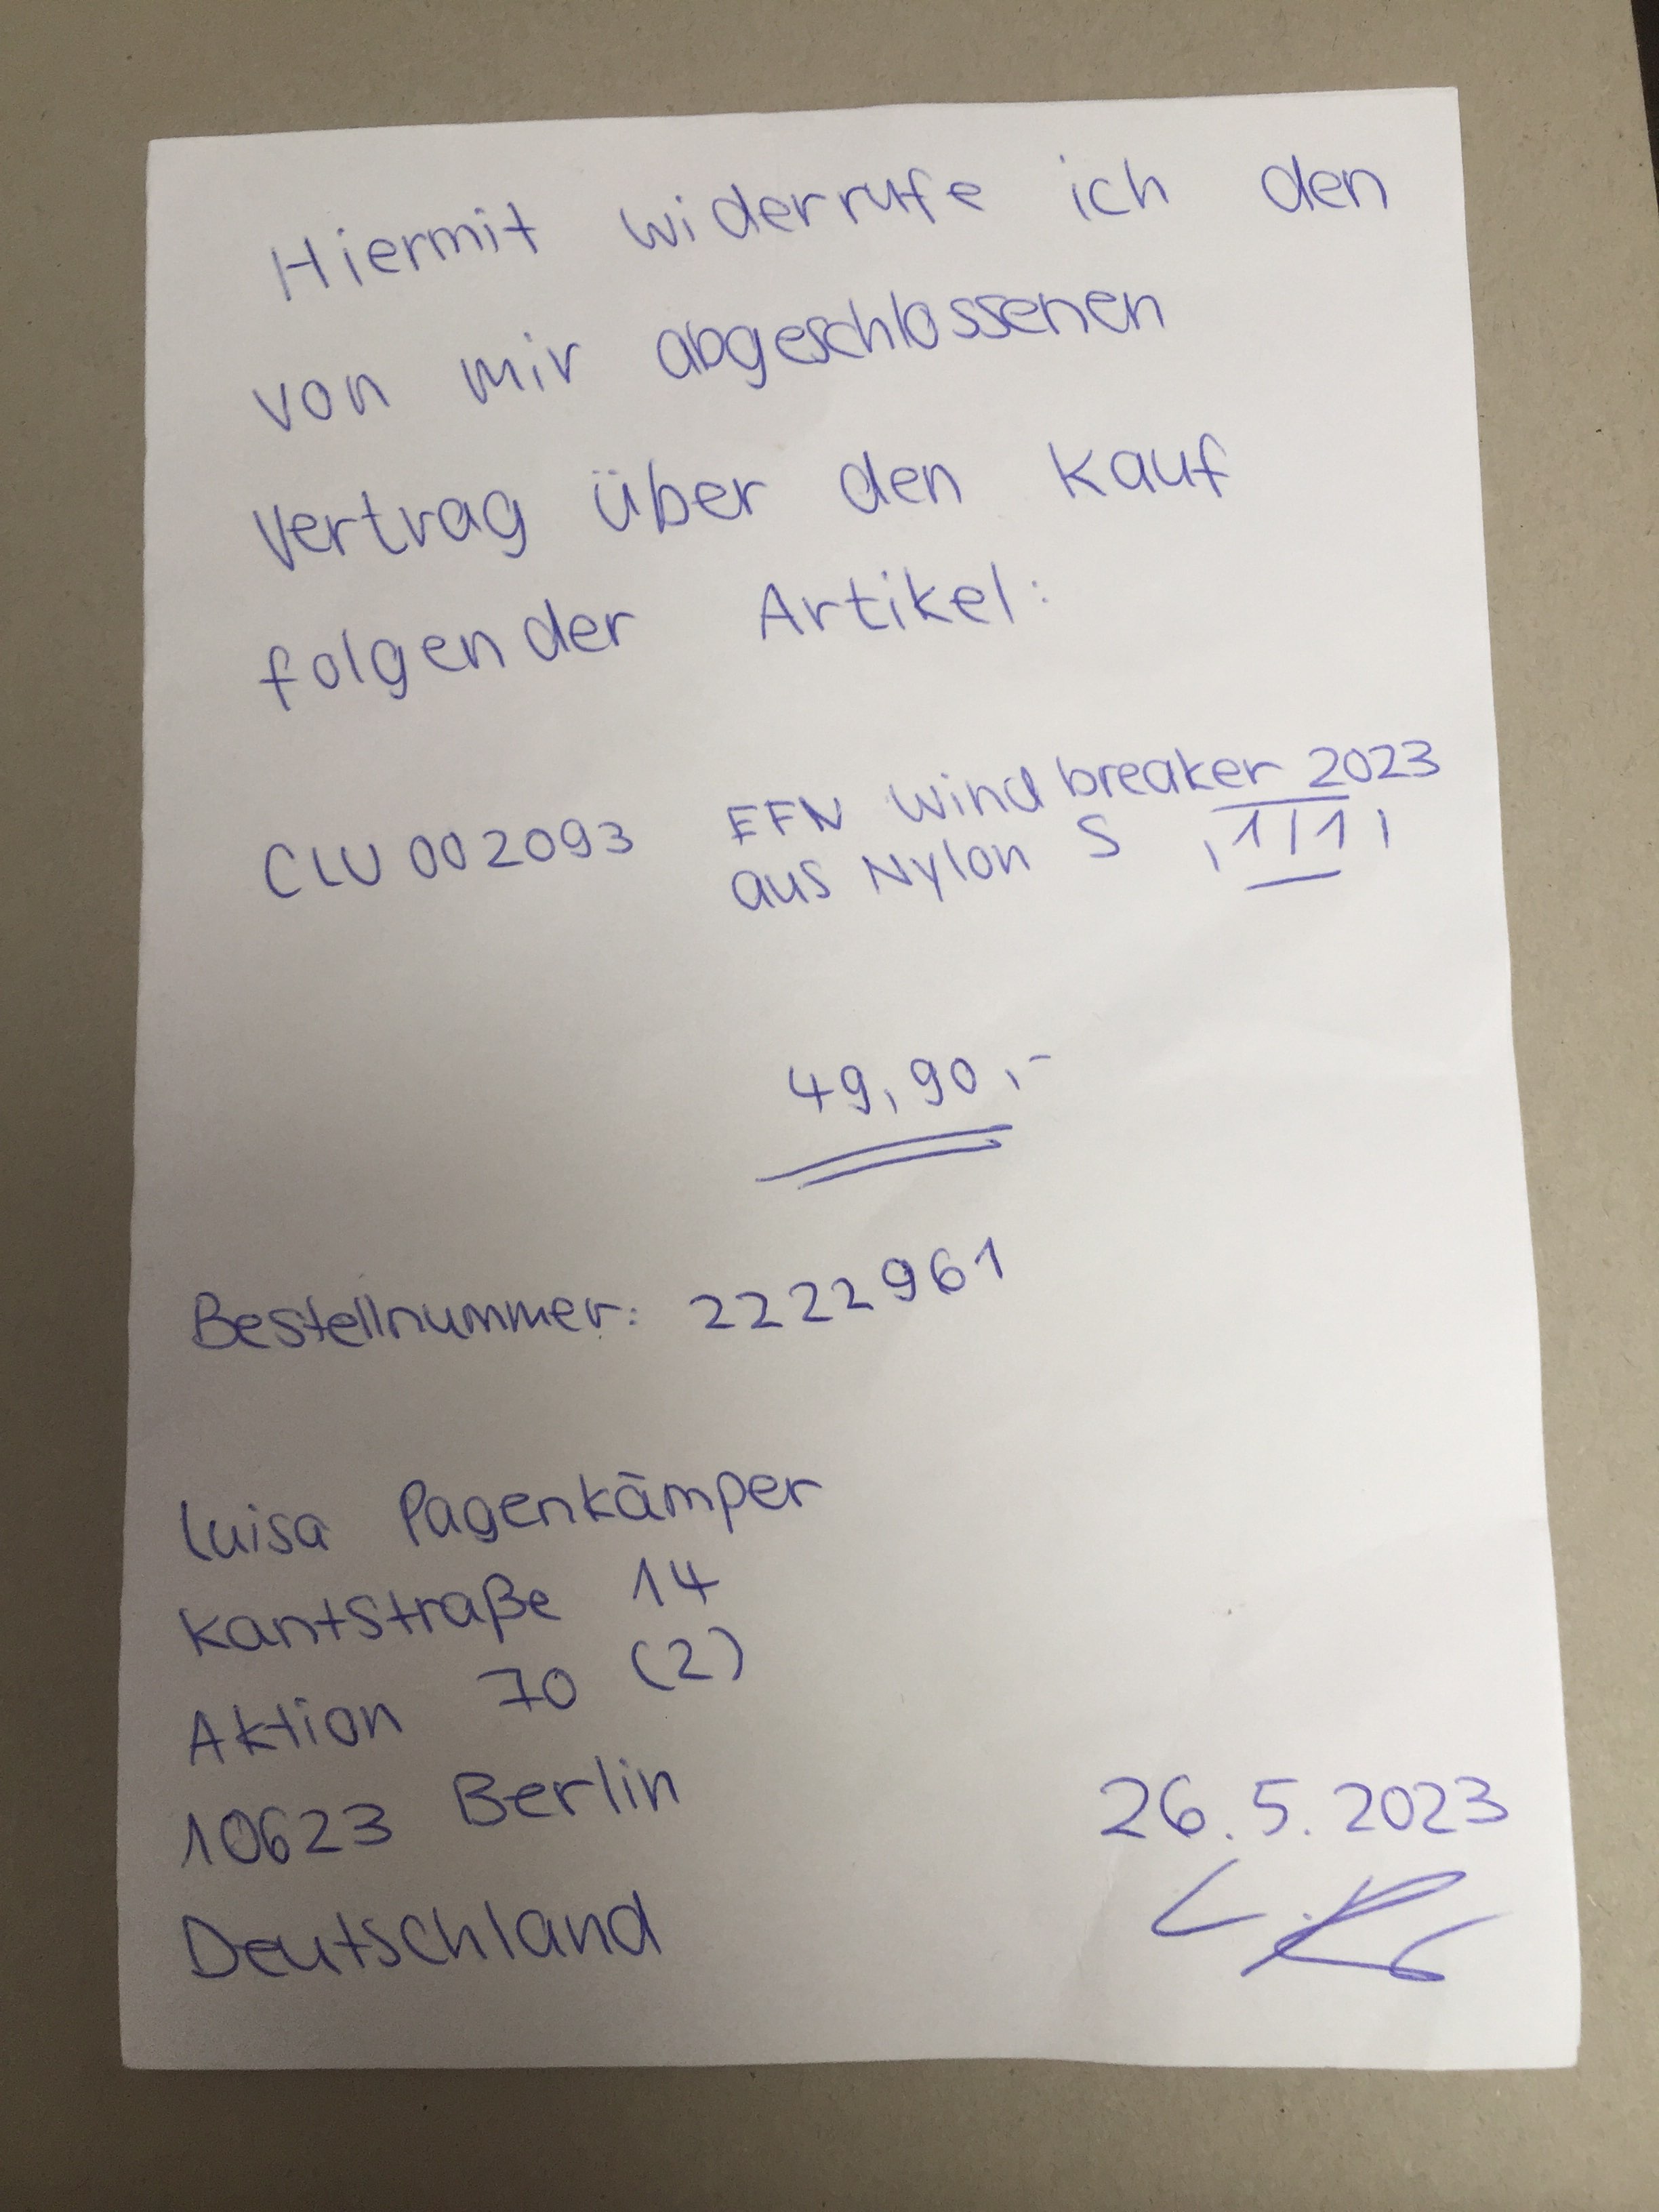 Hiermit widerrufe ich den
von mir abgeschlossenen
Vertrag über den Kauf
folgender Artikel:
CLU 002093 EFN Windbreaker 2023
aus Nylon S ,1/1,
49,90,-
Bestellnummer: 2222961
Luisa Pagenkämper
Kantstraße 14
Aktion 70 (2)
10623 Berlin
Deutschland
26.5.2023